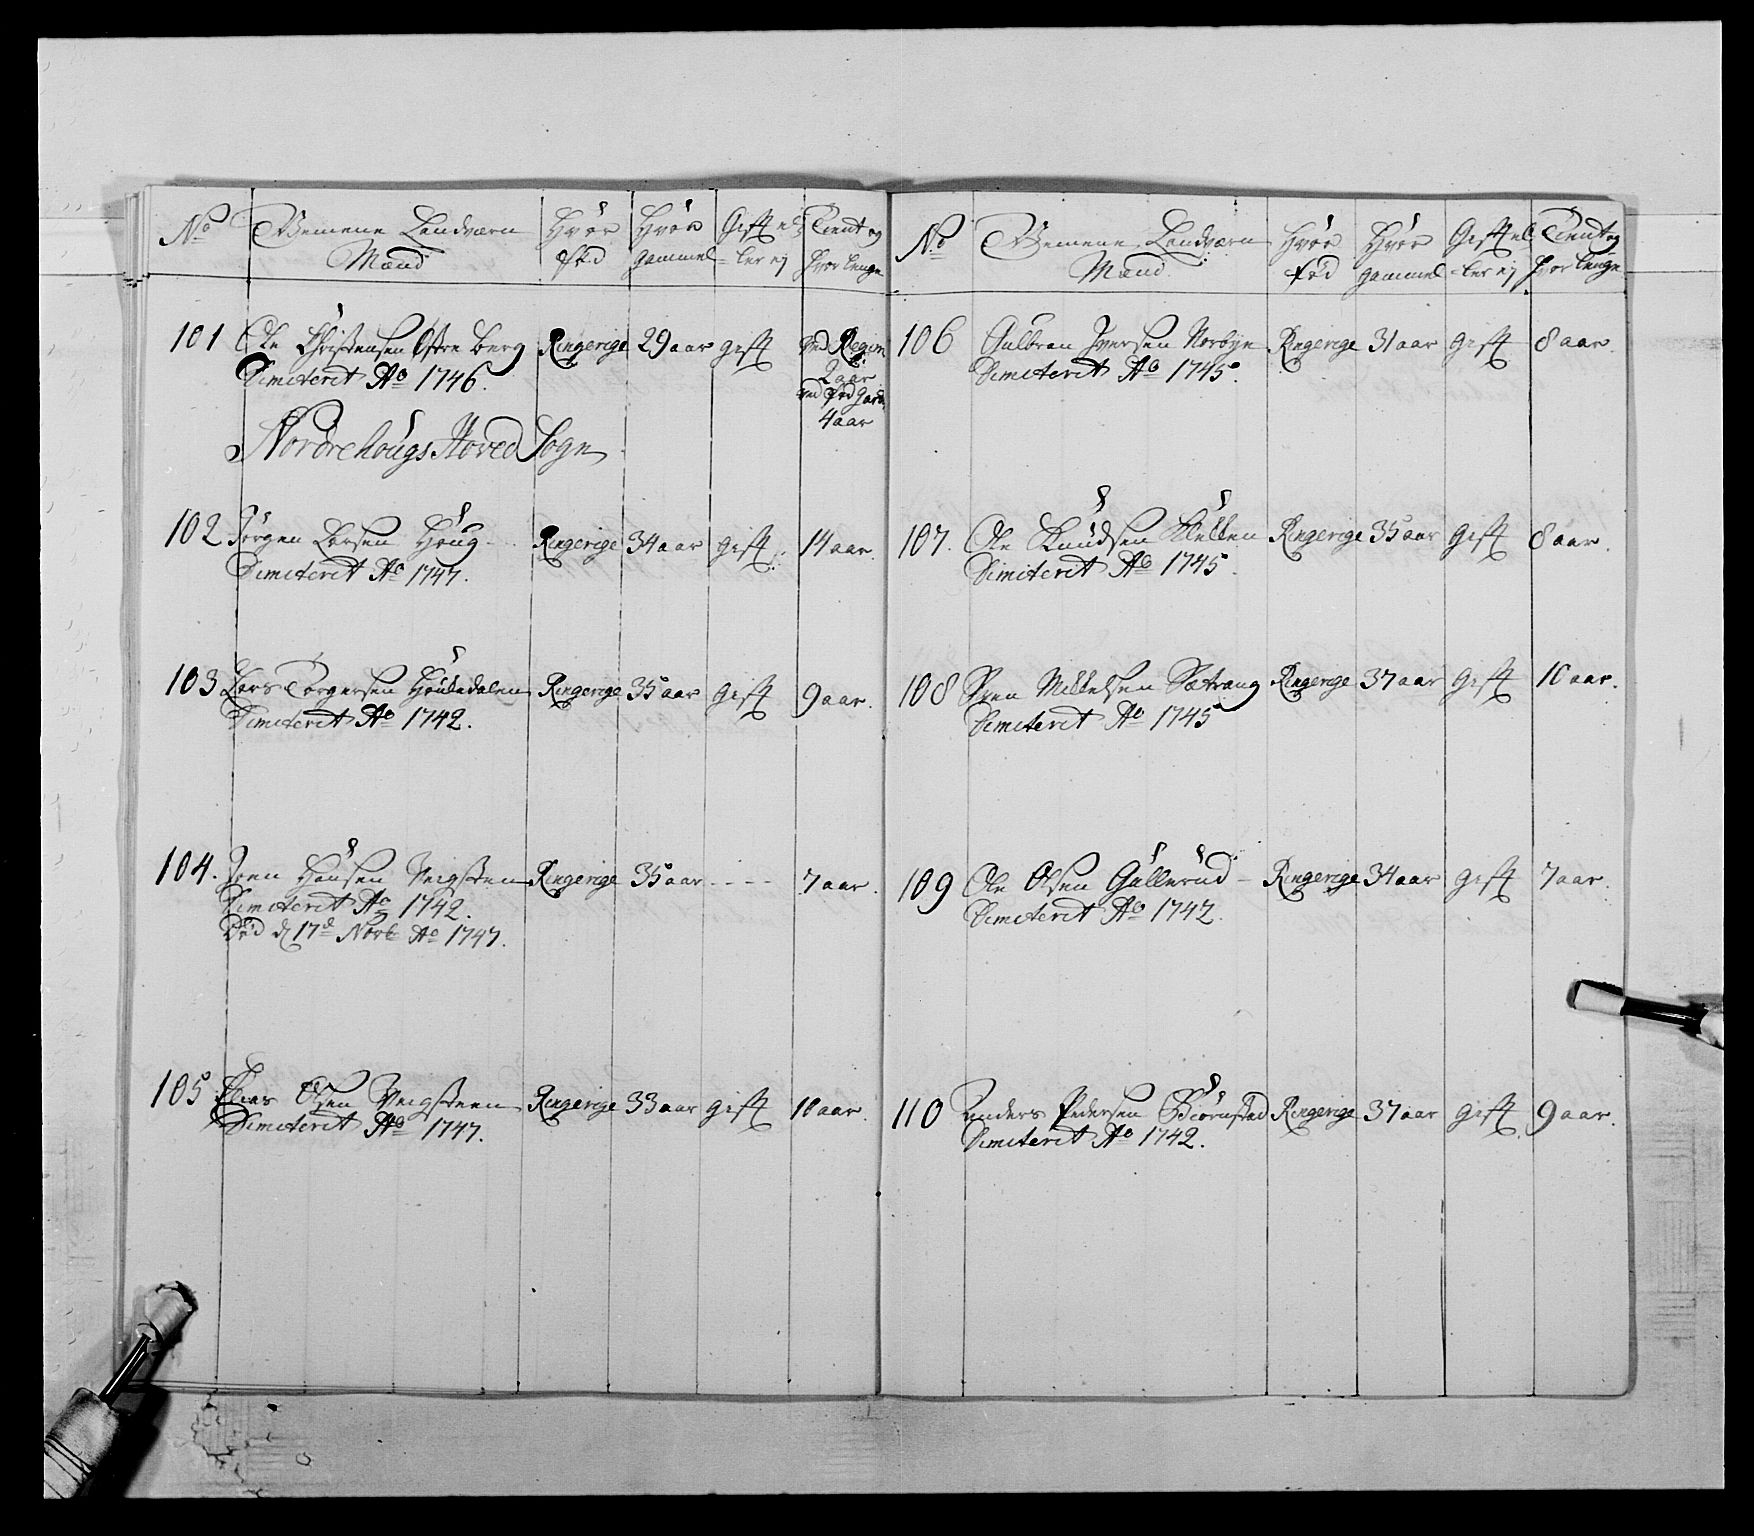 No Gemene Landværn Mænd Hvor fød Hvor gammel Gift eller ej Tient og hvor lenge
101 Ole Christensen Østre berg Ringerige 29 aar gift ved Regim 2 aar ved Fod Gard 4 aar
Dimiterit Ao 1746.
Nordrehougs Hoved Sogn
102 Jørgen Larsen Houg Ringerige 34 aar gift 14 aar.
Dimiterit Ao 1747.
103 Lars Torgersen Ringerige 35 aar gift 9 aar.
Dimiterit Ao 1742.
104. Joen Hansen Veigsteen Ringerige 35 aar ---- 7 aar.
Dimiterit Ao 1742.
Død d 17de Novb Ao 1747.
105 Elias Olsen Veigsteen Ringerige 33 aar gift 10 aar.
Dimiterit Ao 1747.
No Gemene Landværn Mænd Hvor fød Hvor gammel Gift eller ej Tient og hvor lenge
106 Gulbran Iversen Norbye Ringerige 31 aar gift 8 aar.
Dimiterit Ao 1745.
107. Ole Knudsen Ringerige 35 aar gift 8 aar.
Dimiterit Ao 1745.
108 Sven Mikkelsen Sætrang Ringerige 37 aar gift 10 aar.
Dimiterit Ao 1745
109 Ole Olsen Gullerud Ringerige 34 aar gift 7 aar.
Dimiterit Ao 1742.
110 Anders Pedersen Biørnstad Ringerige 37 aar gift 9 aar.
Dimiterit Ao 1742.